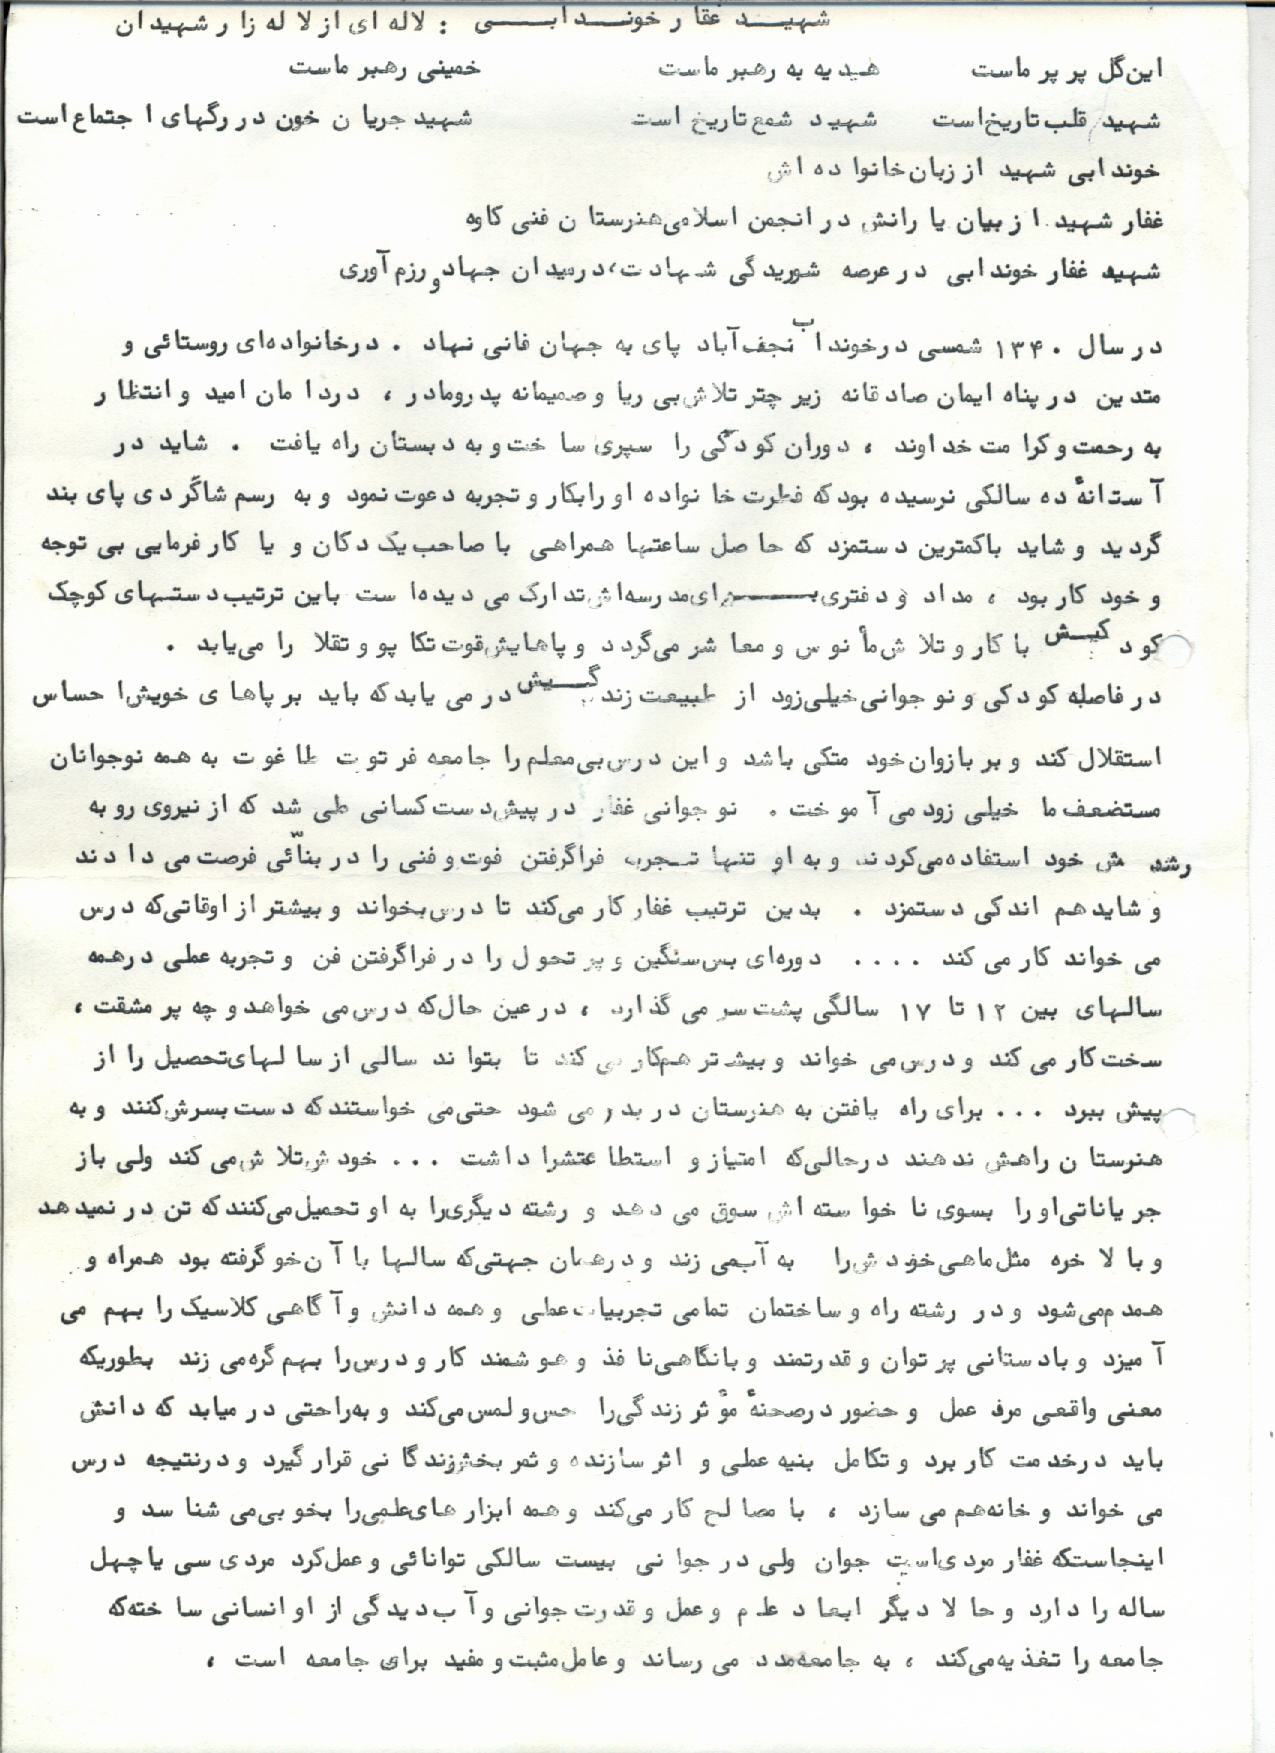 شهید غفار خوندابی : لاله ای از لاله زار شهیدان
این گل پر پر ماست هیدیه به رهبر ماست خمینی رهبر ماست
شهید قلب تاریخ است شهید شمع تاریخ است شهید جریان خون در رگهای اجتماع است
خوندابی شهید از زبان خانواده اش
غفار شهید از بیان یارانش در انجمن اسلامی هنرستان فنی کاوه
شهید غفار خوندابی در عرصه شوریدگی شهادت، در میدان جهاد و رزم آوری
در سال ۱۳۴۰ شمسی در خونداب نجف‌آباد پای به جهان فانی نهاد . در خانواده‌ای روستائی و
متدین در پناه ایمان صادقانه زیر چتر تلاش بی ریا و صمیمانه پدر و مادر ، در دامان امید و انتظار
به رحمت و کرامت خداوند ، دوران کودگی را سپری ساخت و به دبستان راه یافت . شاید در
آستانهٔ ده سالکی نرسیده بود که فطرت خانواده او را بکار و تجربه دعوت نمود و به رسم شاگردی پای بند
گردید و شاید باکمترین دستمزد که حاصل ساعتها همراهی با صاحب یک دکان و یا کار فرمایی بی توجه
و خود کار بود ، مداد و دفتری برای مدرسه‌اش تدارک می دیده است باین ترتیب دستهای کوچک
کودکیش با کار و تلاش مأنوس و معاشر می‌گردد و پاهایش قوت تکاپو و تقلا را می‌یابد .
در فاصله کودکی و نوجوانی خیلی زود از طبیعت زندگیش در می یابد که باید بر پاهای خویش احساس
استقلال کند و بر بازوان خود متکی باشد و این درس بی معلم را جامعه فرتوت طاغوت به همه نوجوانان
مستضعف ما خیلی زود می آموخت . نوجوانی غفار در پیش دست کسانی طی شد که از نیروی رو به
رشدش خود استفاده می‌کردند و به او تنها تجربه فراگرفتن فوت و فنی را در بنّائی فرصت می دادند
و شاید هم اندکی دستمزد . بدین ترتیب غفار کار می‌کند تا درس بخواند و بیشتر از اوقاتی که درس
می خواند کار می کند .... دوره‌ای بس سنگین و پر تحول را در فراگرفتن فن و تجربه عملی در همه
سالهای بین ۱۲ تا ۱۷ سالگی پشت سر می گذارد ، در عین حال که درس می خواهد و چه پر مشقت ،
سخت کار می کند و درس می خواند و بیشتر هم کار می کند تا بتواند سالی از سالهای تحصیل را از
پیش ببرد ... برای راه یافتن به هنرستان در بدر می شود حتی می خواستند که دست بسرش کنند و به
هنرستان راهش ندهند در حالی که امتیاز و استطاعتش را داشت ... خودش تلاش می کند ولی باز
جریاناتی او را بسوی ناخواسته اش سوق می دهد و رشته دیگری را به او تحمیل می‌کنند که تن در نمیدهد
و بالاخره مثل ماهی خودش را به آب می زند و در همان جهتی که سالها با آن خو گرفته بود همراه و
همدم می‌شود و در رشته راه و ساختمان تمامی تجربیات عملی و همه دانش و آگاهی کلاسیک را بهم می
آمیزد و با دستانی پر توان و قدرتمند و با نگاهی نافذ و هوشمند کار و درس را بهم گره می زند بطوریکه
معنی واقعی مرد عمل و حضور در صحنهٔ مؤثر زندگی را حس و لمس می‌کند و به‌راحتی در میابد که دانش
باید در خدمت کار برد و تکامل بنیه عملی و اثر سازنده و ثمر بخش زندگانی قرار گیرد و درنتیجه درس
می خواند و خانه هم می سازد ، با مصالح کار می‌کند و همه ابزارهای علمی را بخوبی می شناسد و
اینجاست که غفار مردی است جوان ولی در جوانی بیست سالکی توانائی و عمل کرد مردی سی یا چهل
ساله را دارد و حالا دیگر ابعاد علم و عمل و قدرت جوانی و آب دیدگی از او انسانی ساخته که
جامعه را تغذیه می‌کند ، به جامعه مدد می رساند و عامل مثبت و مفید برای جامعه است ،